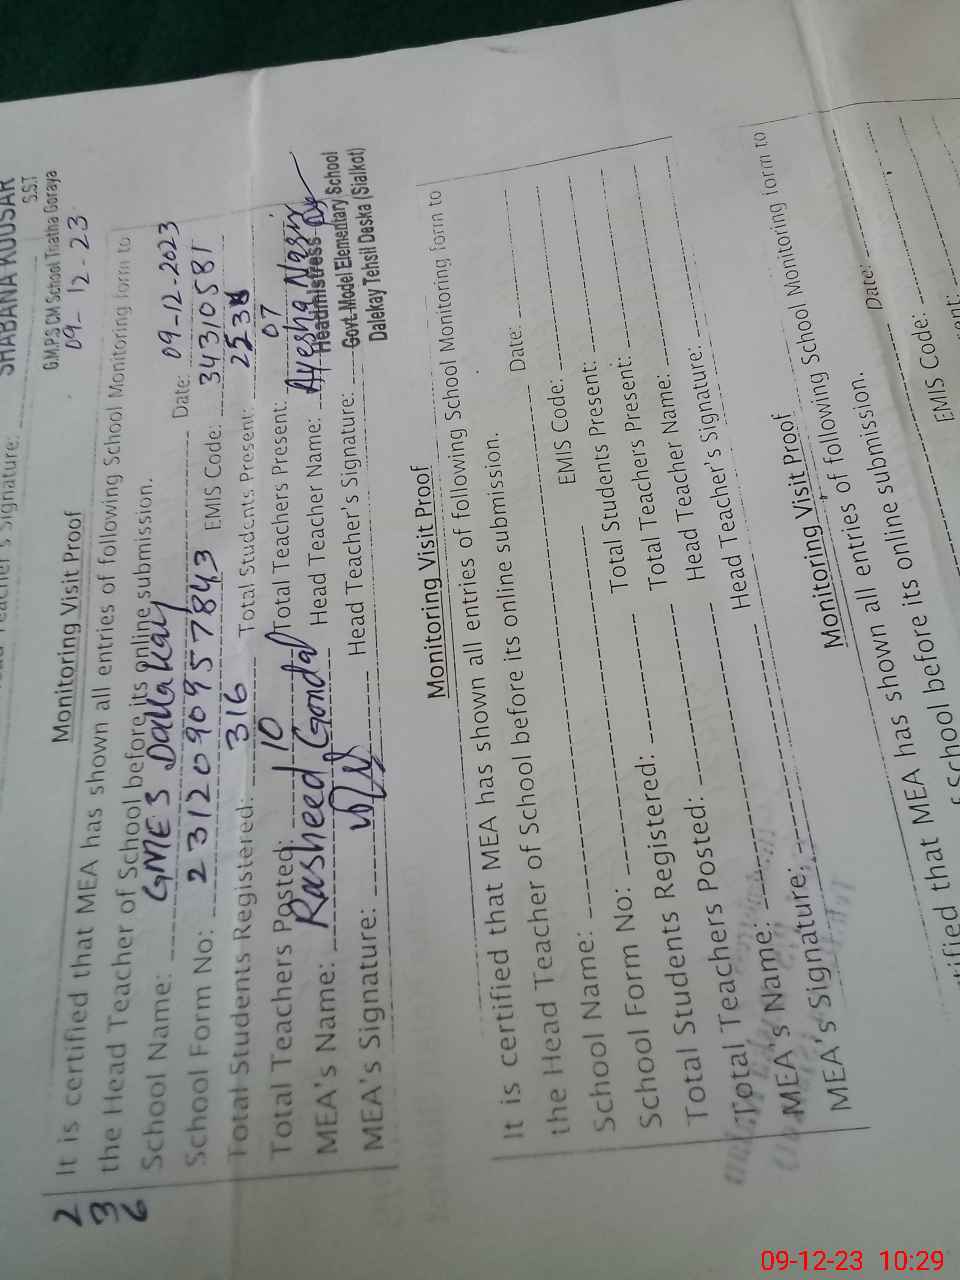 SHABANA KOUSAR
S.S.T
Signature:
G.M.P.S CM School Tratha Goraya
09-12-23
2
3
6
Monitoring Visit Proof
It is certified that MEA has shown all entries of following School Monitoring form to
the Head Teacher of School before its online submission.
School Name: GMES Dallakay Date: 09-12-2023
School Form No: 2312090957843 EMIS Code: 34310581
Total Students Registered: 316 Total Students Present:
Total Teachers Posted: 10 Total Teachers Present: 07
MEA's Name: Rasheed Gondal Head Teacher Name: Ayesha Nazir
MEA's Signature: Head Teacher's Signature:
Headmistress
Govt. Model Elementary School
Dalekay Tehsil Daska (Sialkot)
Monitoring Visit Proof
It is certified that MEA has shown all entries of following School Monitoring form to
the Head Teacher of School before its online submission.
School Name: Date:
School Form No: EMIS Code:
Total Students Registered: Total Students Present:
Total Teachers Posted: Total Teachers Present:
MEA's Name: Head Teacher Name:
MEA's Signature: Head Teacher's Signature:
Total Teachers Posted:
MEA's Name: Head Teacher's Signature:
Monitoring Visit Proof
that MEA has shown all entries of following School Monitoring form to
School before its online submission.
Date:
EMIS Code:
09-12-23 10:29